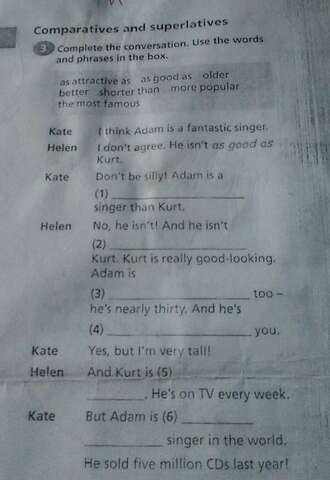 Comparatives and superlatives
3 Complete the conversation. Use the words
and phrases in the box.
as attractive as as good as older
better shorter than more popular
the most famous
Kate I think Adam is a fantastic singer.
Helen I don't agree. He isn't as good as
Kurt.
Kate Don't be silly! Adam is a
(1) ____________________
singer than Kurt.
Helen No, he isn't! And he isn't
(2) ____________________
Kurt. Kurt is really good-looking.
Adam is
(3) ____________________ too –
he's nearly thirty. And he's
(4) ____________________ you.
Kate Yes, but I'm very tall!
Helen And Kurt is (5)
__________. He's on TV every week.
Kate But Adam is (6) __________
__________ singer in the world.
He sold five million CDs last year!